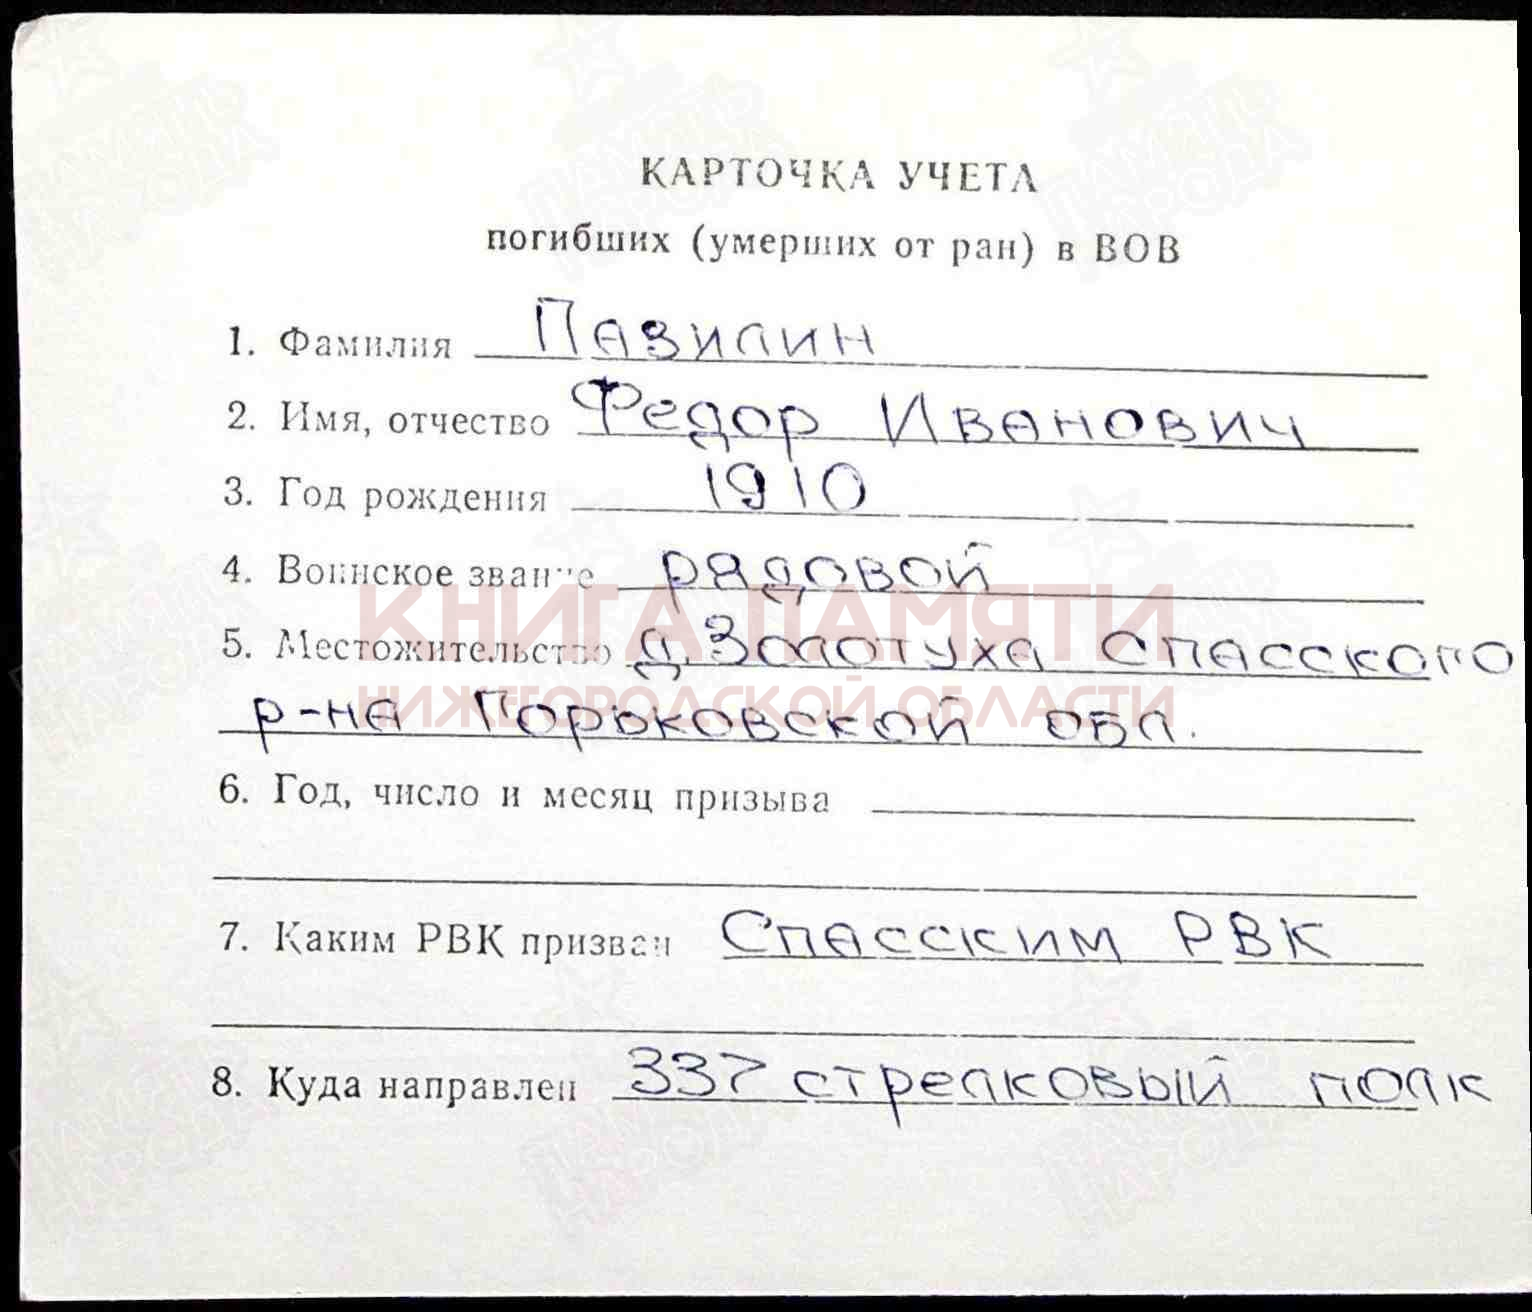 КАРТОЧКА УЧЕТА
погибших (умерших от ран) в ВОВ
1. Фамилия Пазилин
2. Имя, отчество Федор Иванович
3. Год рождения 1910
4. Воинское звание рядовой
КНИГА ПАМЯТИ
5. Местожительство д. Золотуха Спасского
НИЖЕГОРОДСКОЙ ОБЛАСТИ
р-на Горьковской обл.
6. Год, число и месяц призыва
7. Каким РВК призван Спасским РВК
8. Куда направлен 337 стрелковый полк